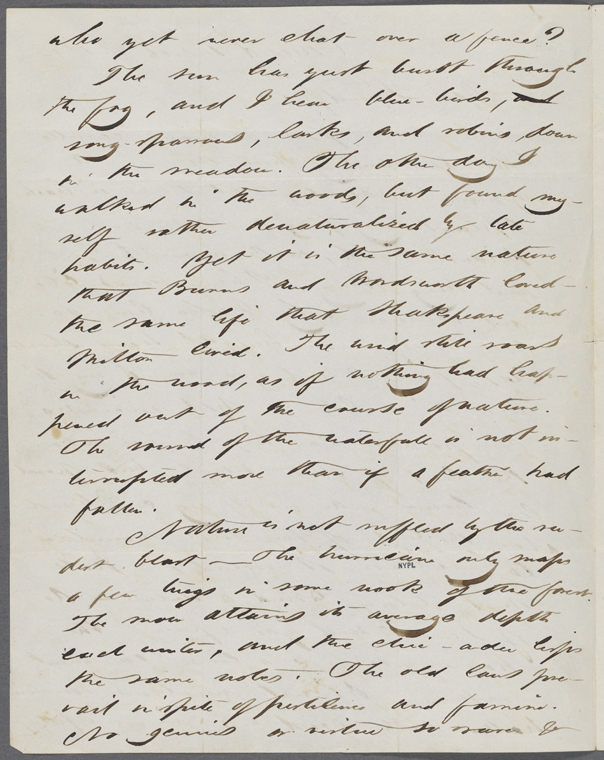 who yet never chat over a fence?
The sun has just burst through
the fog, and I hear blue-birds, and
song-sparrows, larks, and robins, down
in the meadow. The other day I
walked in the woods, but found my-
self rather denaturalized by late
habits. Yet it is the same nature
that Burns and Wordsworth loved
the same life that Shakspeare and
Milton lived. The wind still roars
in the wood, as if nothing had hap-
pened out of the course of nature.
The sound of the waterfall is not in-
terrupted more than if a feather had
fallen.
Nature is not ruffled by the ru-
dest blast — The hurricane only snaps
a few twigs in some nook of the forest.
The snow attains its average depth
each winter, and the chic-adee lisps
the same notes. The old laws pre-
vail in spite of pestilence and famine.
No genius or virtue so rare &
NYPL